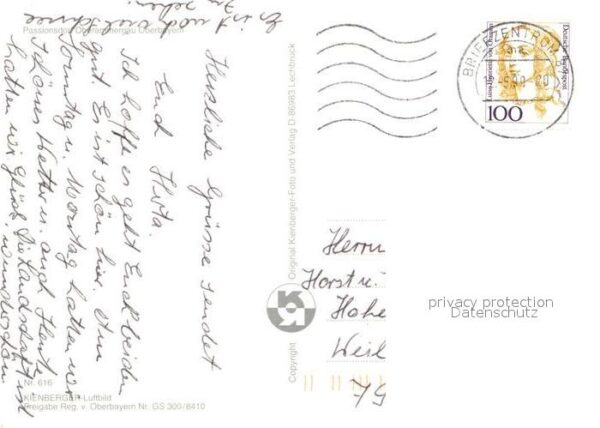 Passionsdorf Oberammergau Oberbayern
Herzliche Grüsse sendet
Euch Herta.
Ich hoffe es geht Euch beiden
gut. Es ist schön hier. Am
Sonntag u. Montag hatten wir
schönes Wetter u. auch Heute
hatten wir Glück. Die Landschaft ist
wunderschön
Es ist noch viel Schnee
zu sehen
Nr. 616
KIENBERGER-Luftbild
Freigabe Reg. v. Oberbayern Nr. GS 300/8410
Copyright
Original Kienberger-Foto und Verlag D-86983 Lechbruck
BRIEFZENTRUM
Deutsche Bundespost
100
Herrn
Horst u.
Hohe
Weil
privacy protection
Datenschutz